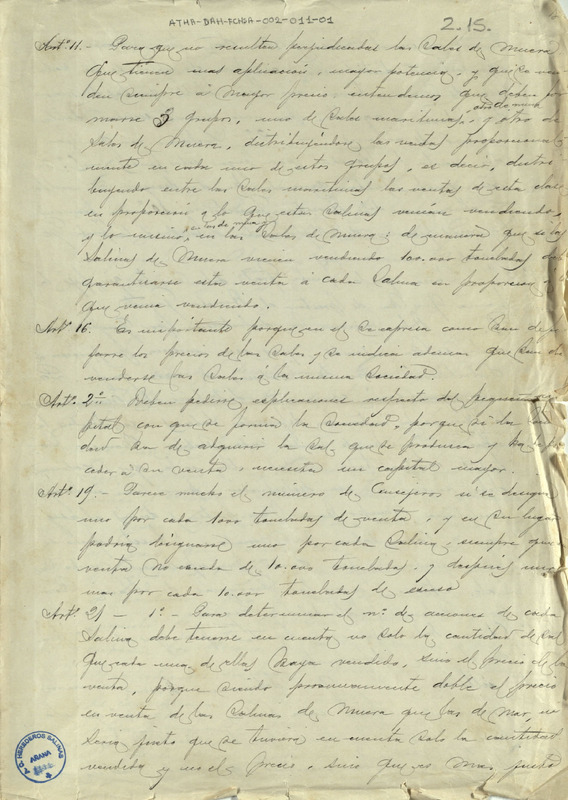 ATHA-DAH-FCHSA-002-011-01
2.15.
Artº. 11.- Para que no resulten perjudicadas las Sales de Muera
que tienen mas aplicación, mayor potencia, y que se ven-
den siempre á mayor precio entendemos que deben for-
marse 3 grupos, uno de Sales marítimas, y otro de
otro de mina
Sales de Muera, distribuyéndose las ventas proporcional-
mente en cada uno de estos grupos, es decir, distri-
buyendo entre las Sales marítimas las ventas de esta clase
en proporción a lo que estas Salinas venían vendiendo,
y lo mismo, en las Sales de Muera: de manera que si las
Salinas de Muera vienen vendiendo 100.000 toneladas
garantizarse esta venta á cada Salina en proporción á lo
que venia vendiendo.
Artº. 16. Es importante porque en el se expresa como han de
los precios de las Sales y se indica ademas que han de
venderse las Sales á la misma Sociedad.
Artº. 2º. Deben pedirse esplicaciones respecto del pequeño
pital con que se forma la Sociedad, porque si la
dad ha de adquirir la sal que se produzca y ha de
ceder á su venta, necesita un capital mayor.
Artº. 19.- Parece mucho el número de Consejeros si se designa
uno por cada 1000 toneladas de venta, y en su lugar
podría designarse uno por cada Salina, siempre que
venta no exceda de 10.000 toneladas, y despues uno
mas por cada 10.000 toneladas de exceso
Artº. 21 - 1º.- Para determinar el nº. de acciones de cada
Salina debe tenerse en cuenta no solo la cantidad de sal
que cada una de ellas haya vendido, sino el precio de la
venta, porque siendo proximamente doble el precio
en venta de las Salinas de Muera que las de Mar, no
seria justo que se tuviera en cuenta solo la cantidad
vendida y no el precio, sino que es mas justo
HEREDEROS SALINAS
AÑANA